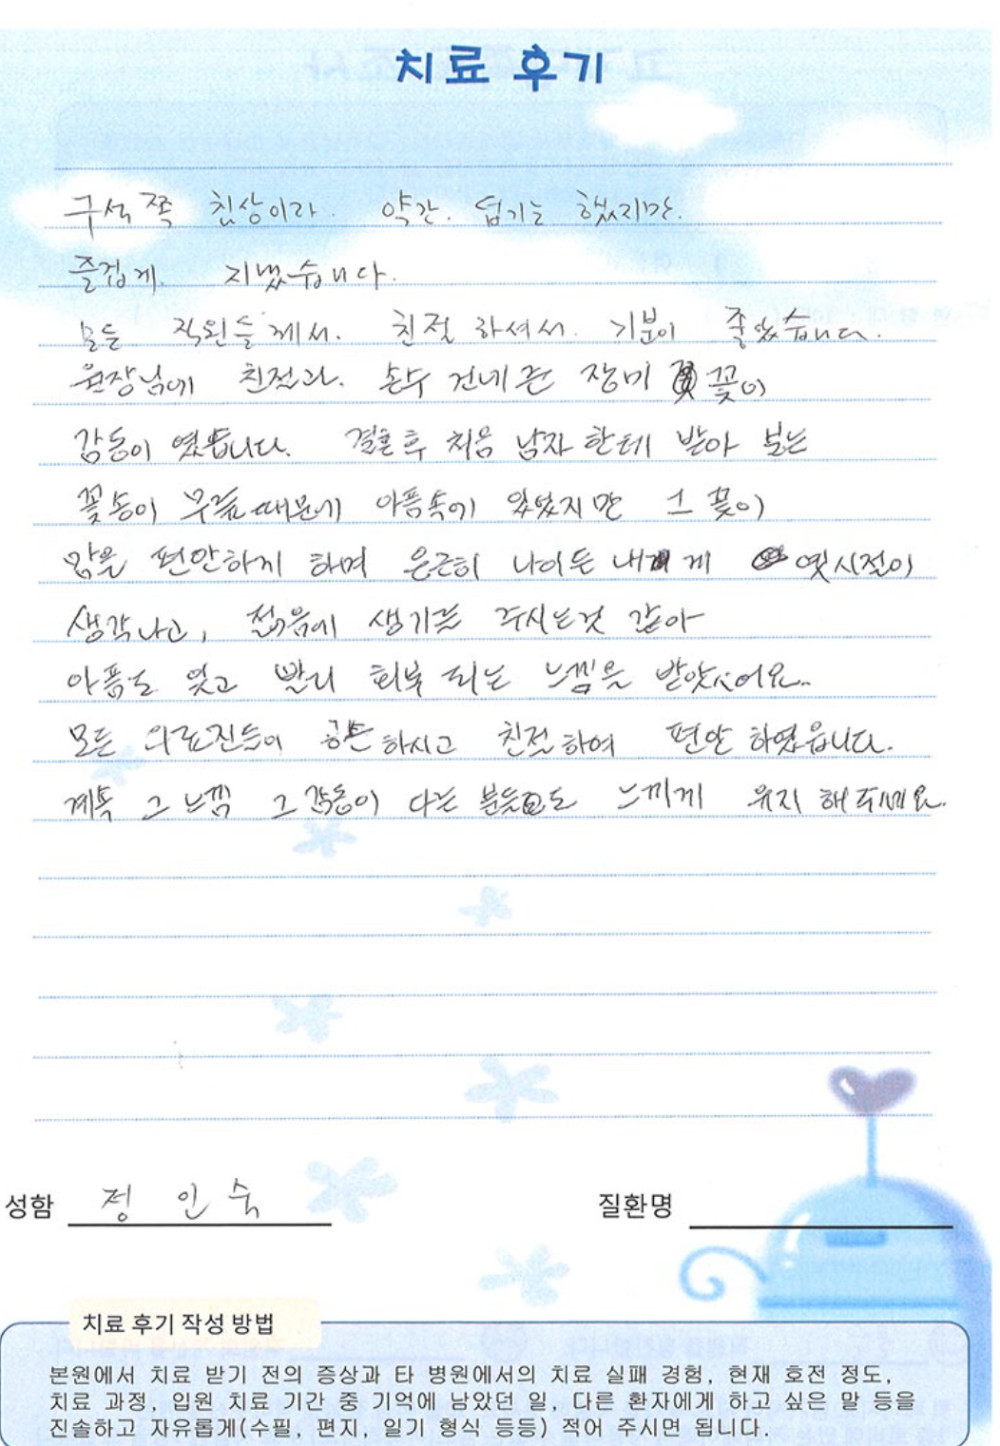 치료 후기
구석쪽 침상이라. 약간. 덥기는 했지만.
즐겁게. 지냈습니다.
모든 직원들께서. 친절 하셔서. 기분이 좋았습니다.
원장님에 친절과. 손수 건네 준 장미 꽃이
감동이 였습니다. 결혼 후 처음 남자 한테 받아 보는
꽃 무릎 때문에 아픔속에 있었지만 그 꽃이
맘을 편안하게 하며 은근히 나이든 내게 옛시절이
생각나고, 젊음에 생기를 주시는것 같아
아픔도 잊고 빨리 회복 되는 느낌을 받았어요..
모든 의료진들이 하시고 친절하여 편안 하였읍니다.
계속 그 느낌 그 감동이 다른 분들도 느끼게 유지 해주세요.
성함 정 인 숙
질환명
치료 후기 작성 방법
본원에서 치료 받기 전의 증상과 타 병원에서의 치료 실패 경험, 현재 호전 정도,
치료 과정, 입원 치료 기간 중 기억에 남았던 일, 다른 환자에게 하고 싶은 말 등을
진솔하고 자유롭게(수필, 편지, 일기 형식 등등) 적어 주시면 됩니다.